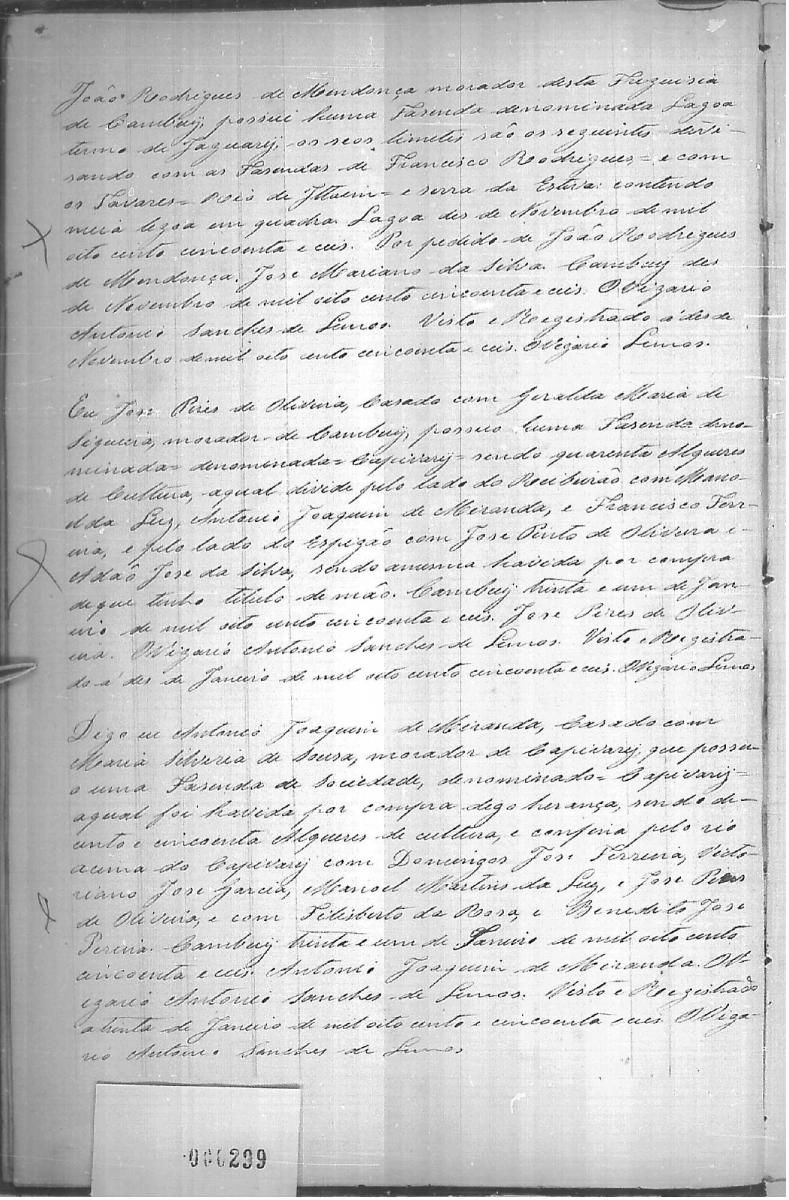 João Rodrigues de Mendonça morador desta Freguisia
de Cambuy, possui huma Fasenda denominada Lagoa
termo de Jaguary, os seos limetes são os seguintes devi-
sando com as Fasendas de Francisco Rodrigues = e com
os Tavares = Rio de Ittaim = e serra da Estiva: contendo
meia legoa em quadra. Lagoa des de Novembro de mil
oito cento cincoenta e ceis. Por pedido de João Rodrigues
de Mendonça. José Mariano da Silva. Cambuy des
de Novembro de mil oito cento cincoenta e ceis. OVigario
Antonio Sanches de Lemos. Visto e Registrado á des de
Novembro de mil oito cento cincoenta e ceis. OVigario Lemos.
Eu Jose Pires de Oliveira, Casado com Geralda Maria de
Siqueira, morador de Cambuy, possuo huma Fasenda deno-
minada = denominada = Capivary = sendo quarenta Alqueres
de Cultura, aqual divide pelo lado do Recibeirão com Mano-
el da Luz, Antonio Joaquim de Miranda, e Francisco Ferr-
eira, e pelo lado do Espigão com Jose Pinto de Oliveira e
Adão Jose da Silva, sendo amesma havida por compra
deque tenho titulo de mão. Cambuy trinta e um de Jan-
eiro de mil oito cento cincoenta e ceis. Jose Pires de Oliv-
eira. OVigario Antonio Sanches de Lemos. Visto e Registra-
do á des de Janeiro de mil oito cento cincoenta e ceis. OVigario Lemos
Digo eu Antonio Joaquim de Miranda, Casado com
Maria Silveria de Sousa, morador de Capivary, que possu-
o uma Fasenda de Sociedade, denominado = Capivary =
aqual foi havida por compra dego herança, sendo de
cento e cincoenta Alqueres de cultura, e confina pelo rio
acima do Capivary com Domingos Jose Ferreira, Victo-
riano Jose Garcia, Manoel Martins da Luz, e Jose Pires
de Oliveira, e com Filisberto da Rosa, e Benedito Jose
Pereira. Cambuy trinta e um de Janeiro de mil oito cento
cincoenta e ceis. Antonio Joaquim de Miranda. OV-
igario Antonio Sanches de Lemos. Visto e Registrado
atrinta de Janeiro de mil oito cento e cincoenta e ceis OViga-
rio Antonio Sanches de Lemos
000299